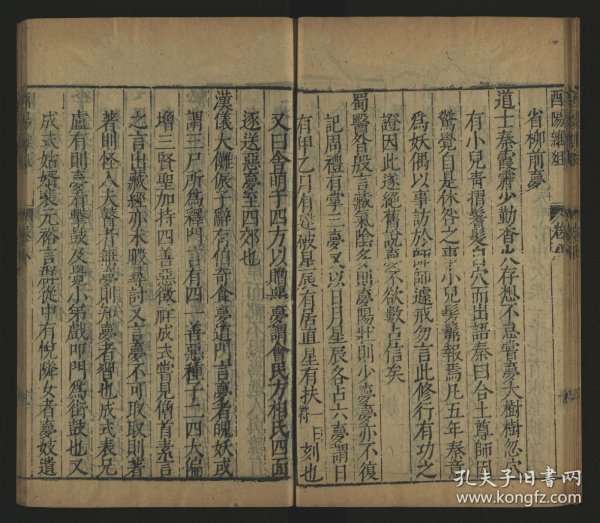 酉陽雜俎
卷八
省柳前夢
道士秦霞霽少勤香火存想不息嘗夢大樹樹忽
有小兒青褶鬢髮自穴而出語秦曰合土尊師
驚覺自是休咎之事小兒髣髴報焉凡五年秦
爲妖偶以事訪於師師遽戒勿言此修行有功之
證因此遂絕舊說夢不欲數占信矣
蜀醫昝殷言藏氣陰多則夢陽壯則少夢夢亦不復
記周禮有掌三夢又以日月星辰各占六夢謂日
有甲乙月有建破星辰有居直星有扶刻也
又曰舍萌于四方以贈惡夢謂會民方相氏四面
逐送惡夢至四郊也
漢儀大儺侲子辭有伯奇食夢道門言夢者魄妖或
謂三尸所爲釋門言有四一善惡種子二四大偏
增三賢聖加持四善惡徵祥成式嘗見僧首素言
之言出藏經亦未暇尋討又言夢不可取取則著
著則怪入夫瞽者無夢則知夢者習也成式表兄
盧有則夢看擊鼓及覺小弟戲叩門爲街鼓也又
成式姑婿裴元裕言群從中有悅鄰女者夢妓遺
孔夫子旧书网
www.kongfz.com